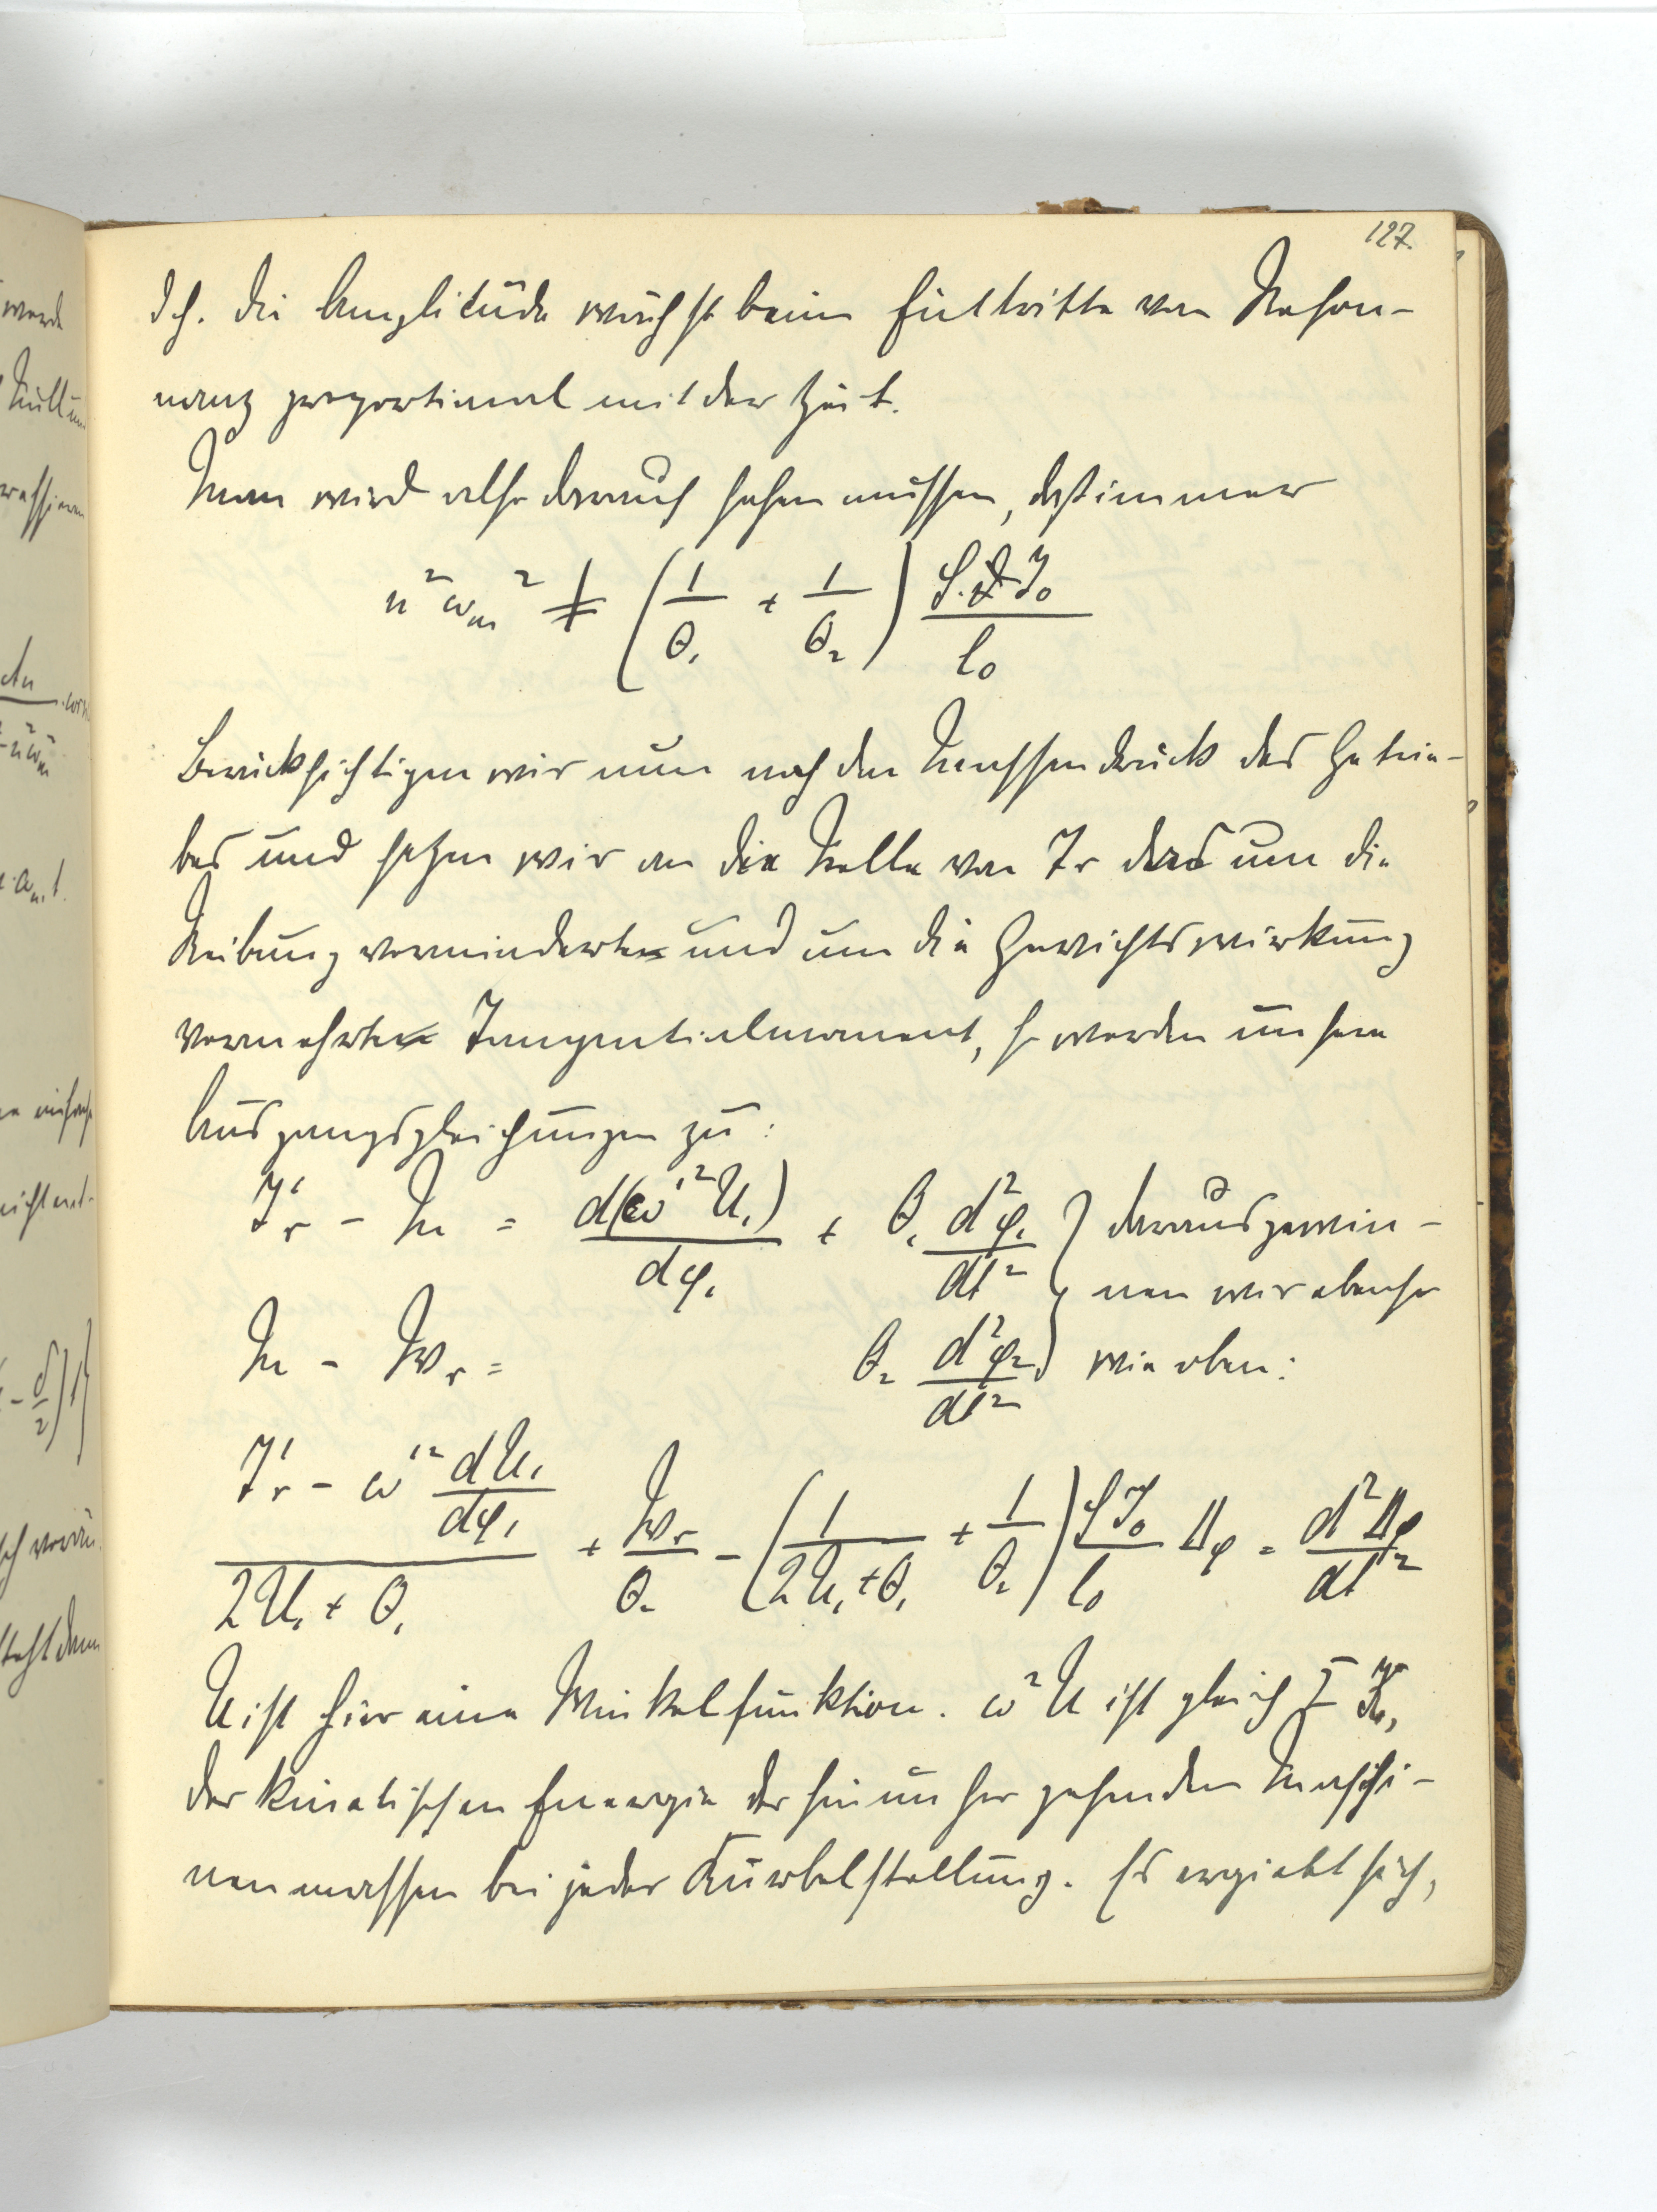 127.
d. h. die Amplitüde wächst beim Eintritte von Reso-
nanz proportional mit der Zeit.
Man wird also darauf sehen müssen, daß immer
n² ω_m² ≠ (1/θ₁ + 1/θ₂) G·J₀/l₀
Berücksichtigen wir nun noch den Massendruck des Getrie-
bes und setzen wir an die Stelle von Tr das um die
Reibung verminderte und um die Gewichtswirkung
vermehrte Tangentialmoment, so werden unsere
Ausgangsgleichungen zu:
T'r - M = d(ω'² U₁)/dφ₁ + θ₁ d²φ₁/dt² } daraus gewin-
nen wir ebenso
M - Wr = θ₂ d²φ₂/dt² } wie oben:
(T'r - ω'² dU₁/dφ₁)/(2U₁ + θ₁) + Wr/θ₂ - (1/(2U₁ + θ₁) + 1/θ₂) GJ₀/l₀ Δφ = d²Δφ/dt²
U ist hier eine Winkelfunktion. ω²U ist gleich
der kinetischen Energie der hin und her gehenden Maschi-
nenmassen bei jeder Kurbelstellung. Es ergiebt sich,